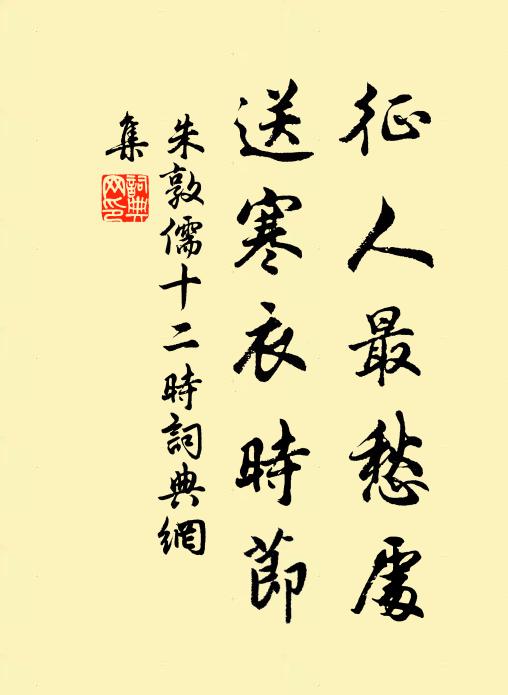 征人最愁處
送寒衣時節
朱敦儒十二時詞典網
集
詞典
网印